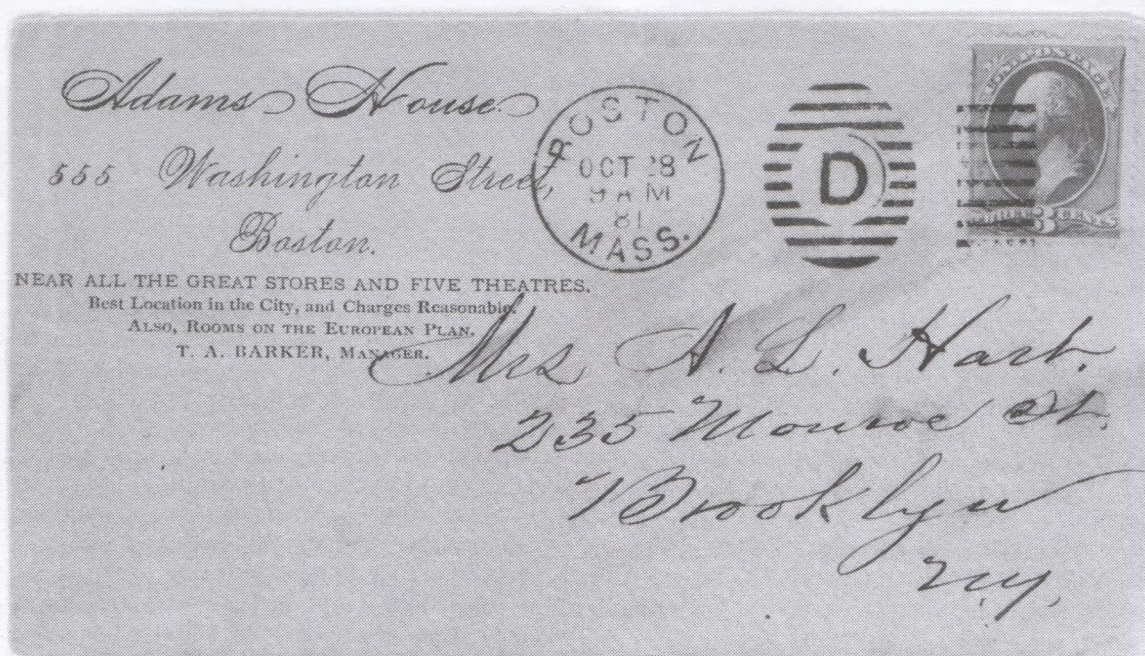 Adams House
555 Washington Street,
Boston.
NEAR ALL THE GREAT STORES AND FIVE THEATRES.
Best Location in the City, and Charges Reasonable.
ALSO, ROOMS ON THE EUROPEAN PLAN.
T. A. BARKER, MANAGER.
BOSTON
OCT 28
9 AM
81
MASS.
D
THREE 3 CENTS
Mrs A. L. Hart.
235 Monroe St.
Brooklyn
N.Y.